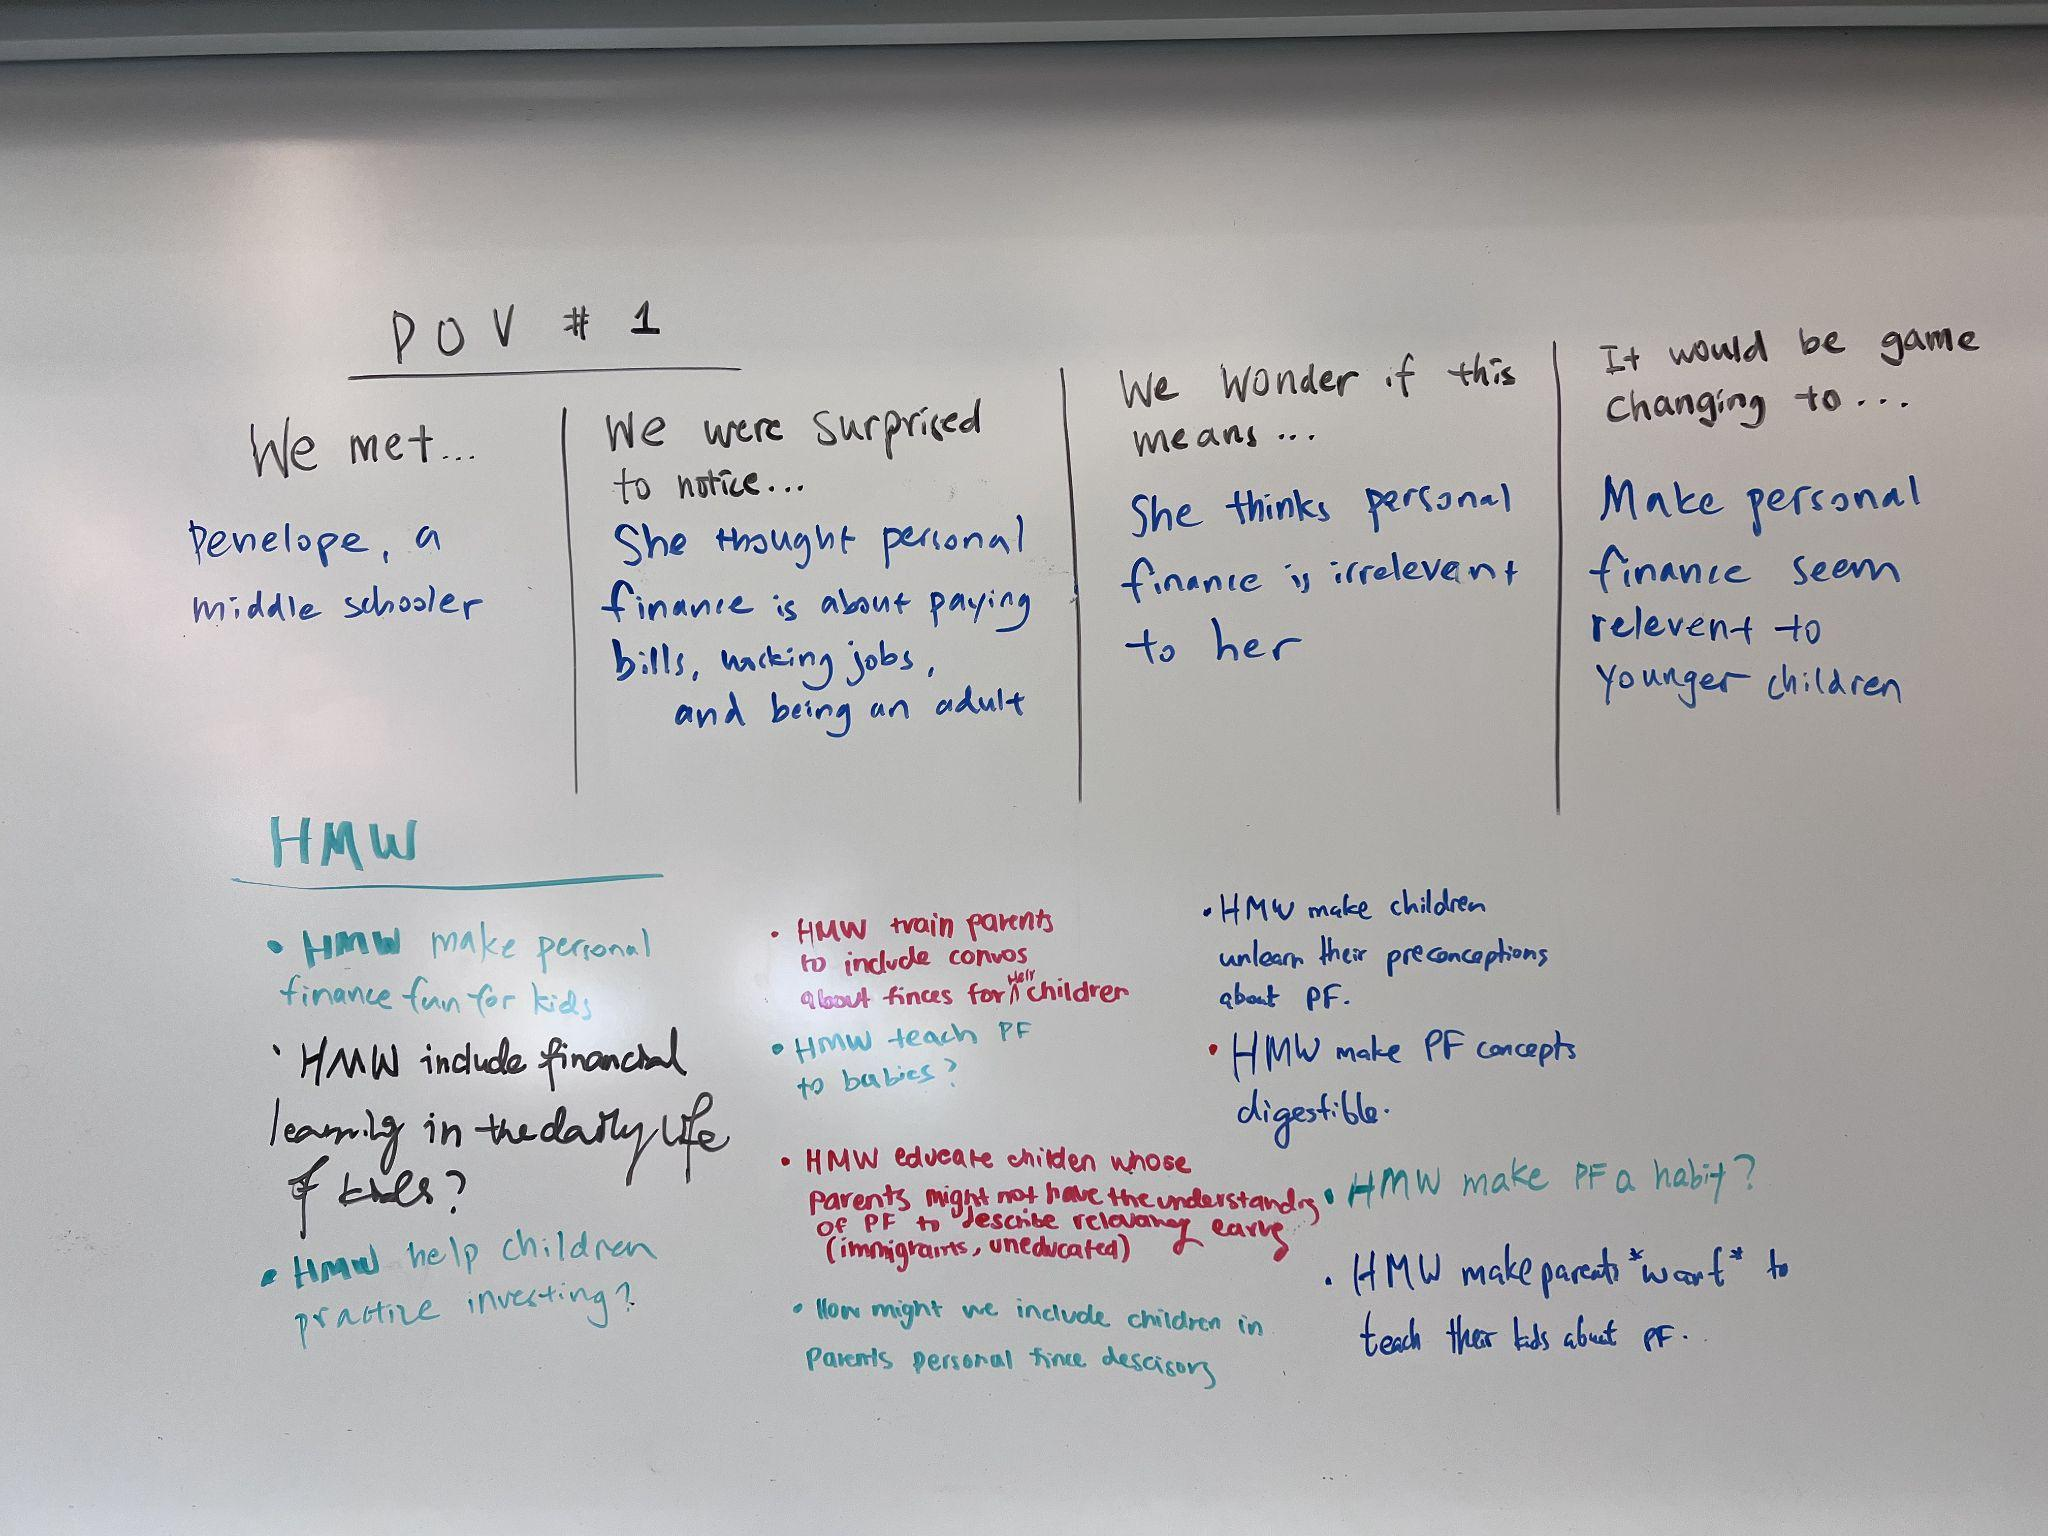 POV # 1
We met...
Penelope, a
middle schooler
We were surprised
to notice...
She thought personal
finance is about paying
bills, working jobs,
and being an adult
We wonder if this
means...
She thinks personal
finance is irrelevant
to her
It would be game
changing to...
Make personal
finance seem
relevent to
younger children
HMW
• HMW make personal
finance fun for kids
• HMW include financial
learning in the daily life
of kids?
• HMW help children
practice investing?
• HMW train parents
to include convos
about finces for ^ their children
• HMW teach PF
to babies?
• HMW educate childen whose
parents might not have the understanding
of PF to describe relevancy early
(immigraints, uneducated)
• How might we include children in
parents personal fince descisors
• HMW make children
unlearn their preconceptions
about PF.
• HMW make PF concepts
digestible.
• HMW make PF a habit?
• HMW make parents *want* to
teach their kids about PF.